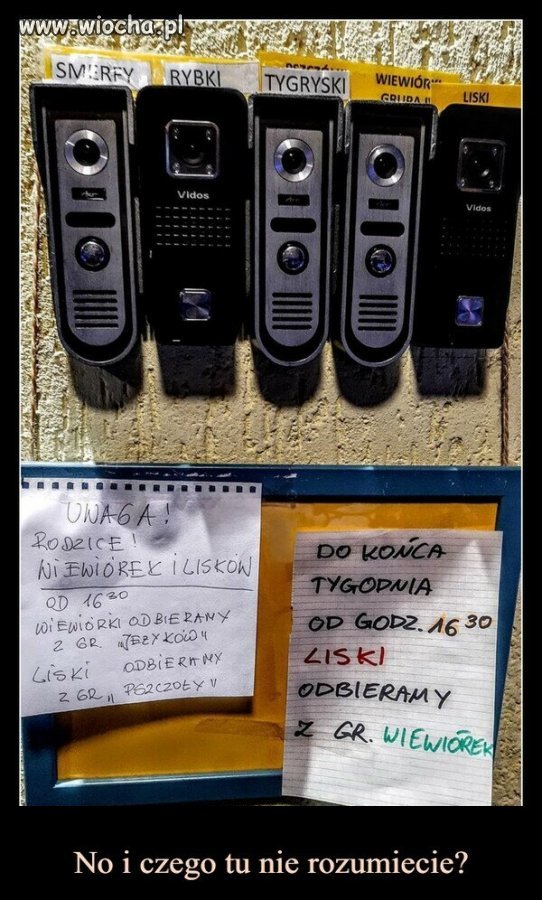 www.wiocha.pl
SMERFY
RYBKI
TYGRYSKI
WIEWIÓR
GRUPA II
LISKI
Vidos
Vidos
UWAGA!
RODZICE!
WIEWIÓREK i LISKÓW
OD 16 30
WIEWIÓRKI ODBIERAMY
Z GR. „JEŻYKÓW"
LISKI ODBIERAMY
Z GR „PSZCZOŁY"
DO KOŃCA
TYGODNIA
OD GODZ. 16 30
LISKI
ODBIERAMY
Z GR. WIEWIÓREK
No i czego tu nie rozumiecie?